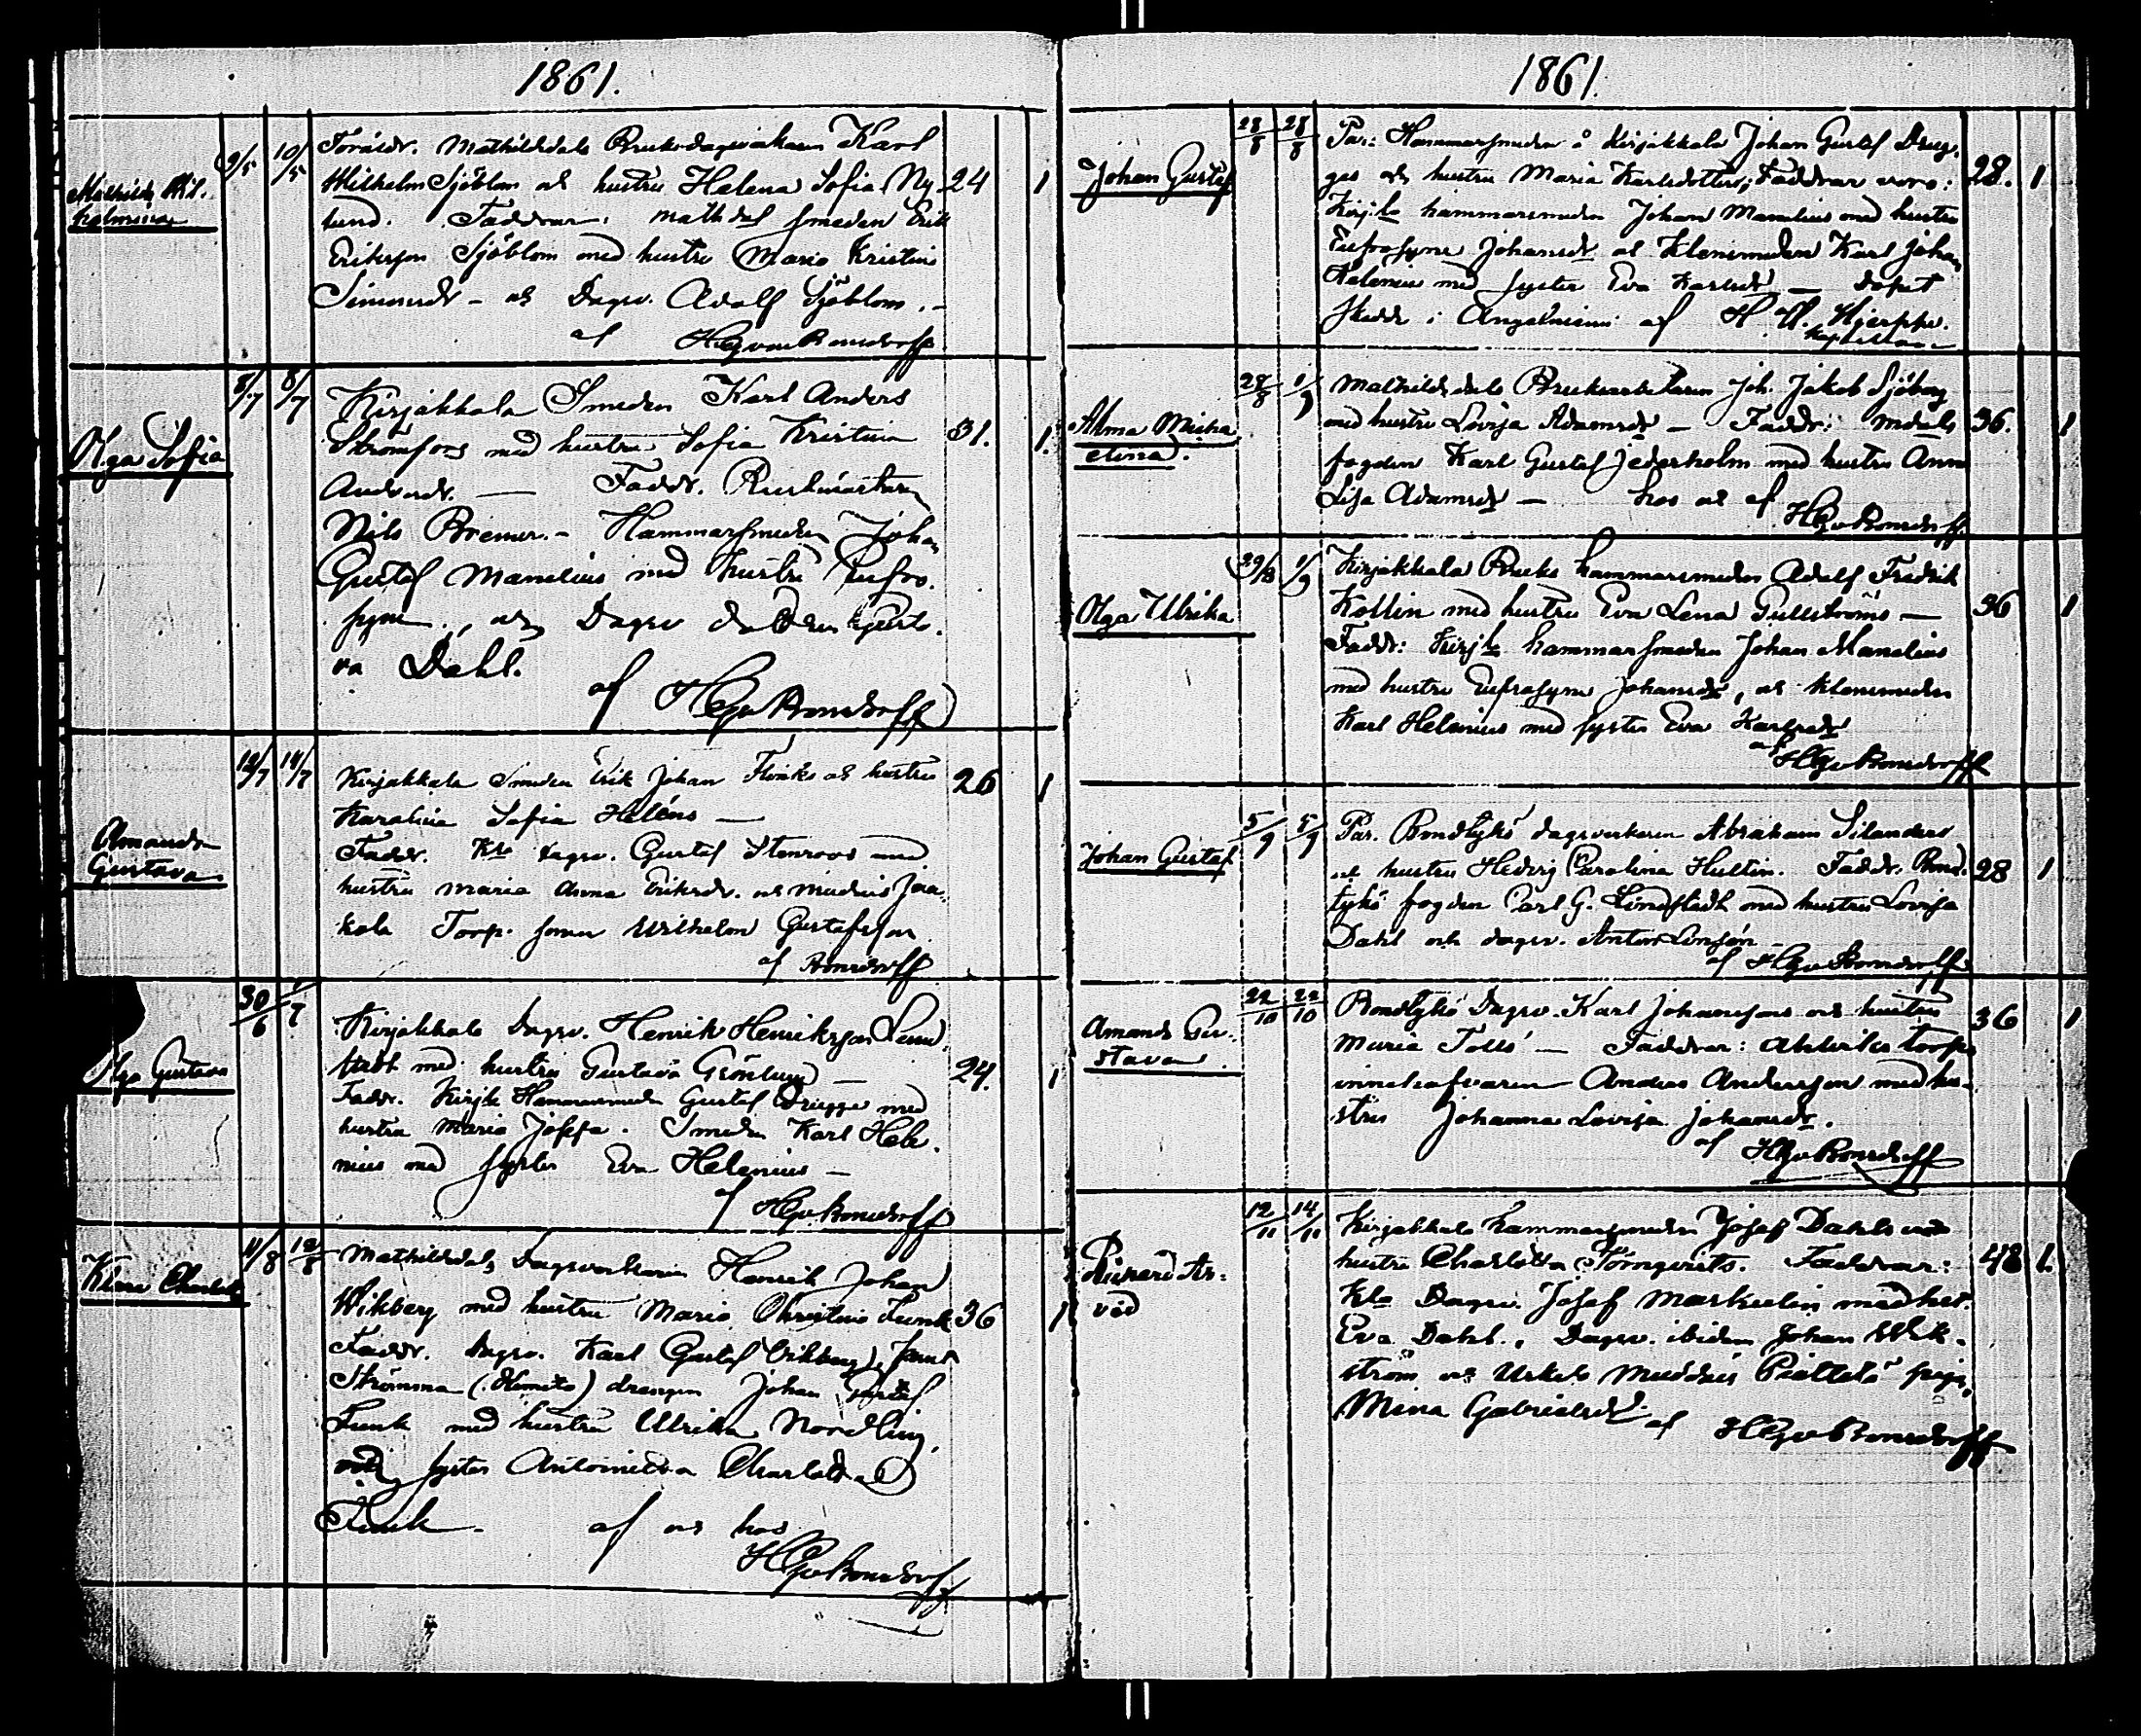 1861.
Mathilda Wil-
helmina
9/5 10/5
Föräldr. Mathildedals Bruksdagsverkaren Karl
Wilhelm Sjöblom och hustru Helena Sofia Ny 24 1
lund. Faddrar: Mathdal smeden Erik
Eriksson Sjöblom med hustru Maria Kristina
Simonsdr - och Dagsv. Adolf Sjöblom.-
af HG von Bonsdorff
Olga Sofia
8/7 8/7
Kirjakkala Smeden Karl Anders
Strömfors med hustru Sofia Kristina 31. 1.
Andersdr. — Faddr.
Nils Bremer.- Hammarsmeden Johan
Gustaf Manelius med hustru Eufro-
syne, och Dagsv
va Dahl.
af HGvBonsdorff
Amanda
Gustava
12/7 14/7
Kirjakkala Smeden Erik Johan Flinks och hustru 26 1
Karolina Sofia Heléns —
Faddr. Kla dagsv. Gustaf Stenroos med
hustru Maria Anna Eriksdr. och
kola Torp. sonen Wilhelm Gustafsson
af Bonsdorff
Olga Gustava
30/6 /7
Kirjakkala Dagsv. Henrik Henriksson Lund
stedt med hustru Gustava Grönlund — 24. 1
Faddr. Kirjk Hammarsmeden Gustaf Drugge med
hustru Maria Josefa. Smeden Karl Hele-
nius med syster Eva Helenius —
af HGvBonsdorff
Klara Charlot
11/8 12/8
Mathildedals Dagsverkaren Henrik Johan
Wikberg med hustru Maria Christina Funk 36 1
Faddr. Dagsv. Karl Gustaf Vikberg,
Strömma (Kimito) drängen Johan Gustaf
Funk med hustru Ulrika Nordling,
och syster Antoinetta Charlotta
Funk. af och hos
HGvBonsdorff
1861.
Johan Gustaf
28/8 28/8
Par: Hammarsmeden å Kirjakkala Johan Gustaf Drug-
ges och hustru Maria Karlsdotter; Faddrar voro: 28. 1
Kirjkla hammarsmeden Johan Manelius med hustru
Eufrosyne Johansdr och Klensmeden Karl Johan
Helenius med syster Eva Karlsdr — dopet
skedde i Angelniemi af H. W. Hjerppe.
Kapellan
Alma Micha
elina.
28/8 1/9
Mathildedals Bruksarbetaren Joh. Jakob Sjöberg
med hustru Lovisa Adamsdr — Faddr: Mdals 36. 1
fogden Karl Gustaf Jederholm med hustru Anna
Lisa Adamsdr — hos och af
HGvBonsdorff.
Olga Ulrika
29/8 1/9
Kirjakkala Bruks hammarsmeden Adolf Fredrik
Kollin med hustru Eva Lena Gullströms — 36 1
Faddr: Kirjkla hammarsmeden Johan Manelius
med hustru Eufrosyne Johansdr, och klensmeden
Karl Helenius med syster Eva Karlsdr
af HGvBonsdorff
Johan Gustaf
5/9 5/9
Par. Bondtykö dagsverkaren Abraham Silanders
och hustru Hedvig Carolina Hultin. Faddr. Bond- 28 1
tykö fogden Carl G. Lindstedt med hustru Lovisa
Dahl och dagsv. Anton
af HGvBonsdorff
Amanda Gu-
stava
22/10 22/10
Bondtykö Dagsv. Karl Johanssons och hustru 36 1
Maria Tolls — Faddrar: torps
innehafvaren Anders Andersson med hu-
stru Johanna Lovisa Johansdr.
af HGvBonsdorff
Rickard Ar-
vid
12/11 14/11
Kirjakkala hammarsmeden Josef Dahls och
hustru Charlotta Törnqvists. Faddrar: 48 1.
Kla Dagsv. Josef Markelin med hst.
Eva Dahl., Dagsv. ibidem Johan Wik-
ström och Uskela
Mina Gabrielsdr.
af HGvBonsdorff